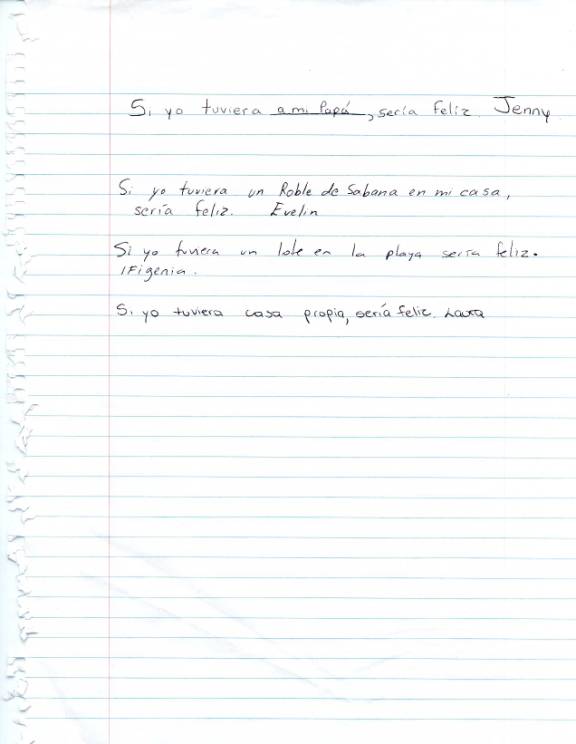 Si yo tuviera a mi Papá, sería feliz. Jenny
Si yo tuviera un Roble de Sabana en mi casa,
sería feliz. Evelin
Si yo tuviera un lote en la playa sería feliz.
IFigenia.
Si yo tuviera casa propia, sería feliz. Laura